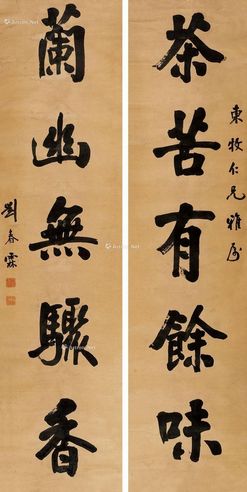 東牧仁兄雅屬
茶苦有餘味
蘭幽無驟香
劉春霖